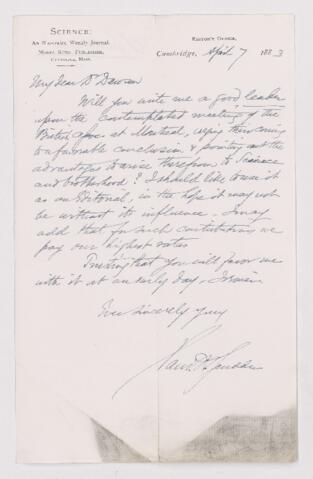 SCIENCE:
AN ILLUSTRATED WEEKLY JOURNAL.
MOSES KING, PUBLISHER,
CAMBRIDGE, MASS.
EDITOR'S OFFICE,
Cambridge, April 7 1883
My dear Dr Dawson
Will you write me a good leader
upon the contemplated meeting of the
British Assoc. at Montreal, urging them coming
to a favorable conclusion & pointing out the
advantages to arise therefrom to Science
and brotherhood? I should like to use it
as an Editorial, in the hope it may not
be without its influence. I may
add that for such contributions we
pay our highest rates
Trusting that you will favor me
with it at an early day, I remain
Very sincerely yours
Sam. H. Scudder